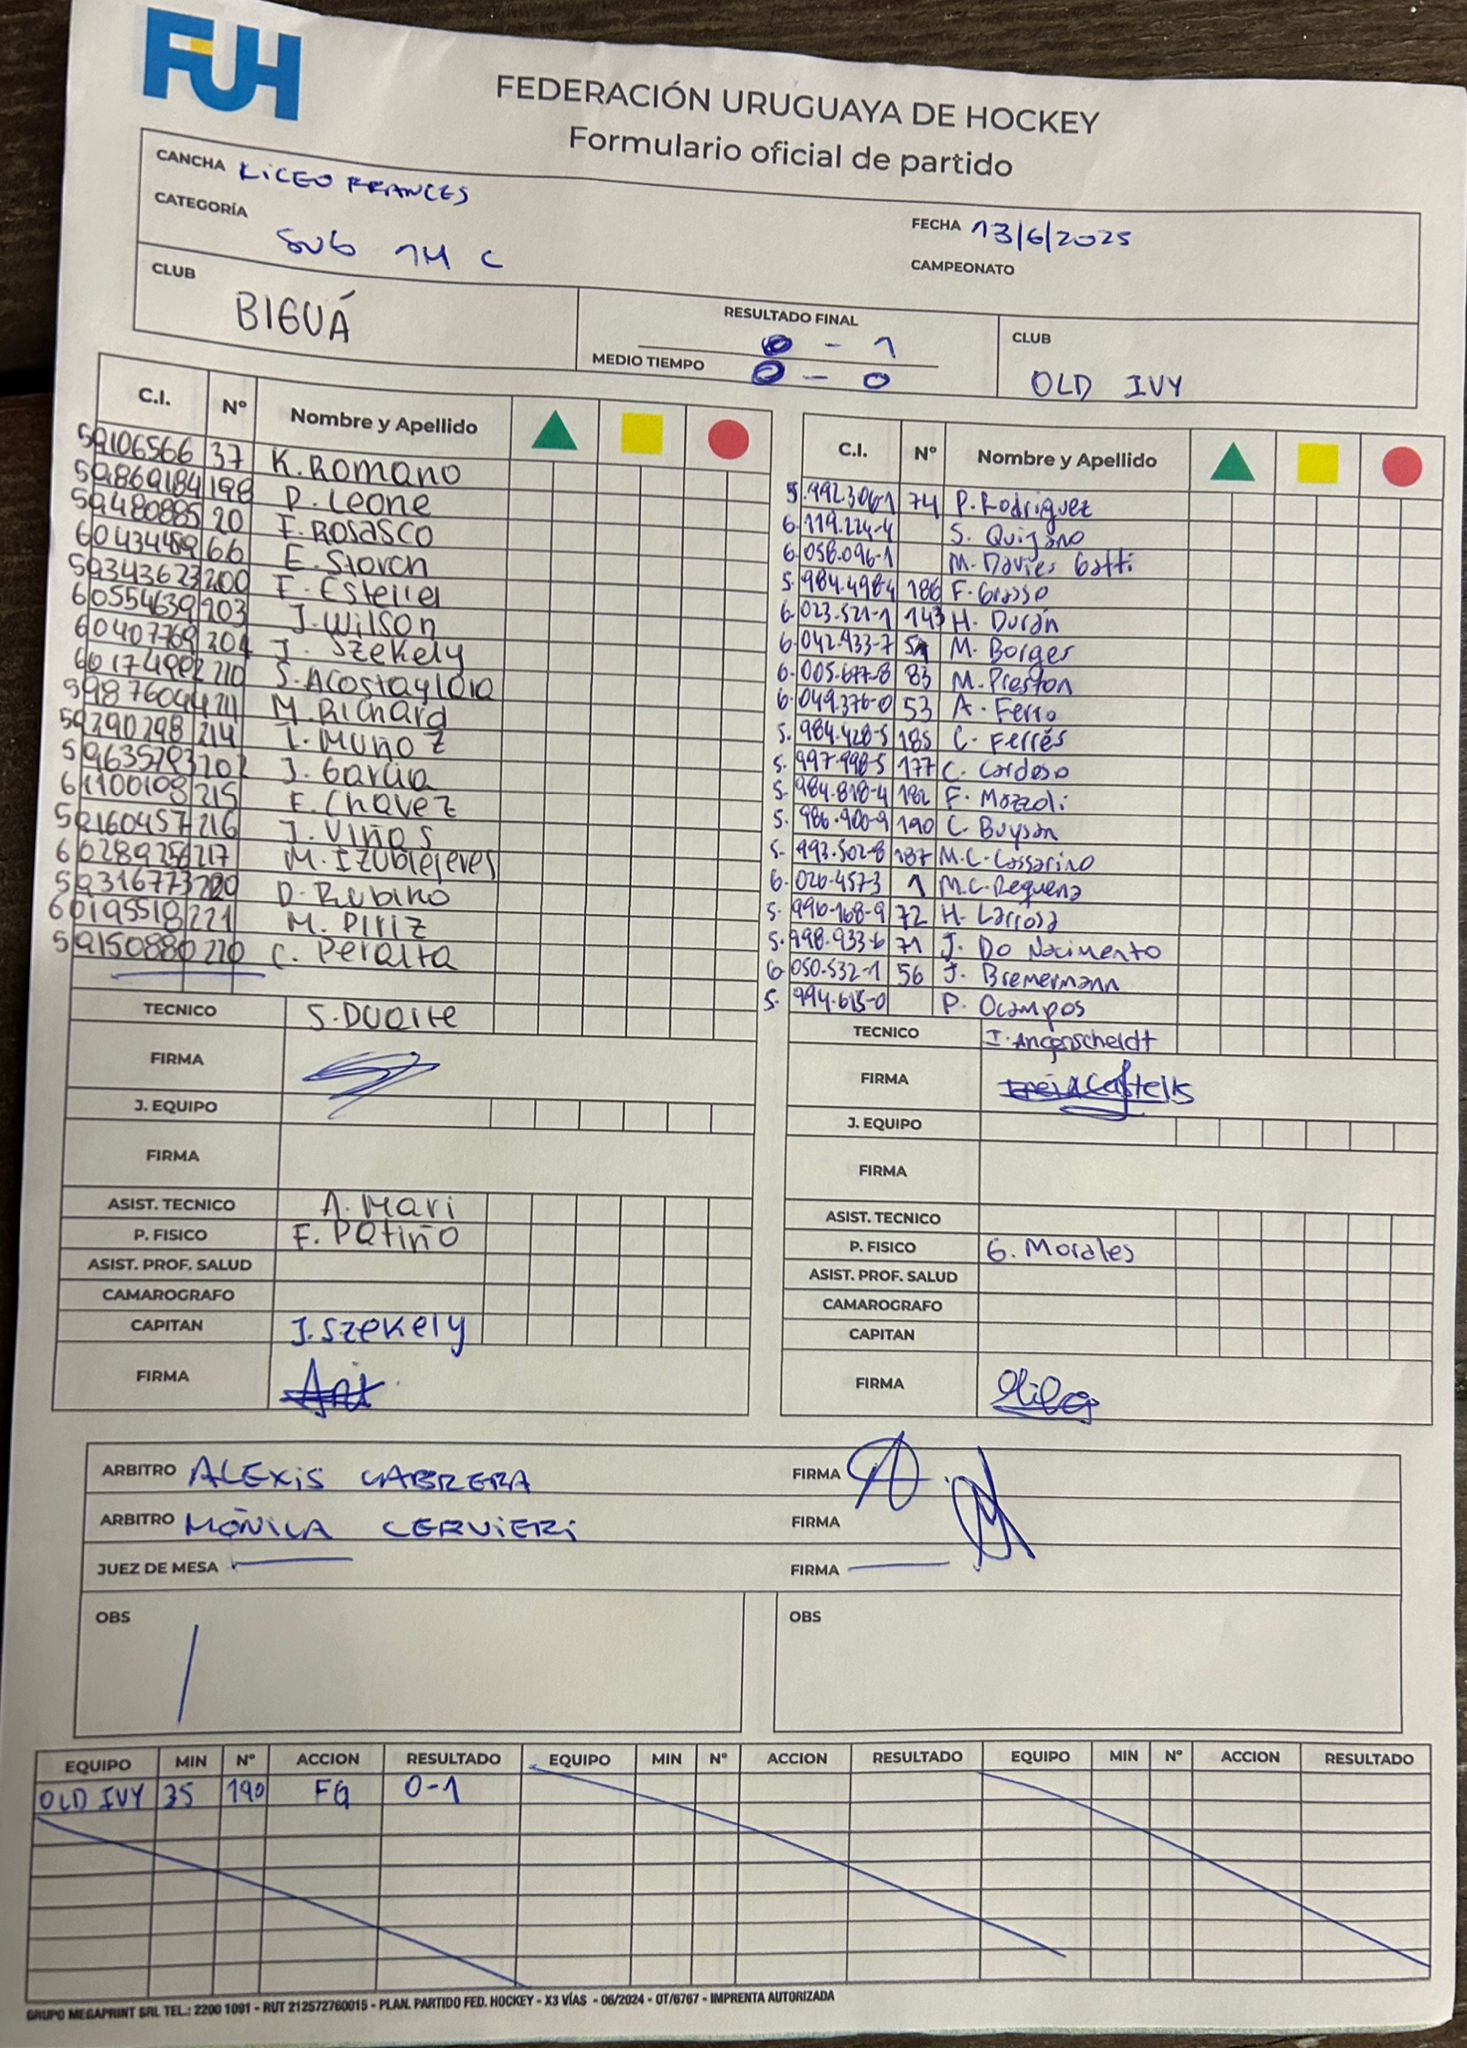 FUH
FEDERACIÓN URUGUAYA DE HOCKEY
Formulario oficial de partido
CANCHA LICEO FRANCES
CATEGORÍA SUB 14 C
FECHA 13/6/2025
CAMPEONATO
CLUB BIGUÁ
RESULTADO FINAL 0 - 1
MEDIO TIEMPO 0 - 0
CLUB OLD IVY
C.I. Nº Nombre y Apellido
59106566 37 K. Romano
59869184 198 P. Leone
59480885 20 F. Rosasco
60434489 66 E. Storch
59343623 200 F. Estella
60554639 203 J. Wilson
60407769 204 J. Szekely
60174902 210 S. Acostaylara
59876044 211 M. Richard
59290298 214 I. Muñoz
59635793 202 J. Garcia
61100108 215 E. Chavez
59160457 216 J. Viñas
60289256 217 M. Izublejeres
59316773 220 D. Rubino
60195518 221 M. Piriz
59150880 220 C. Peralta
TECNICO S. Duarte
FIRMA
J. EQUIPO
FIRMA
ASIST. TECNICO A. Mari
P. FISICO F. Patiño
ASIST. PROF. SALUD
CAMAROGRAFO
CAPITAN J. Szekely
FIRMA
C.I. Nº Nombre y Apellido
5.992.306-1 74 P. Rodriguez
6.119.224-4 S. Quijano
6.058.096-1 M. Davies Gatti
5.984.498-4 186 F. Grasso
6.023.521-1 143 H. Durán
6.042.933-7 M. Borges
6.005.677-8 83 M. Preston
6.049.376-0 53 A. Ferro
5.984.428-5 185 C. Ferrés
5.997.998-5 177 C. Cardoso
5.984.818-4 182 F. Mazzoli
5.986.900-9 190 C. Buysan
5.993.502-8 187 M.C. Cassarino
6.026.457-3 1 M.C. Requena
5.990.168-9 72 H. Larrosa
5.998.933-6 71 J. Do Nacimento
6.050.532-1 56 J. Bremermann
5.994.615-0 P. Ocampos
TECNICO I. Angenscheidt
FIRMA
J. EQUIPO
FIRMA
ASIST. TECNICO
P. FISICO G. Morales
ASIST. PROF. SALUD
CAMAROGRAFO
CAPITAN
FIRMA
ARBITRO ALEXIS CABRERA FIRMA
ARBITRO MÓNICA CERVIERI FIRMA
JUEZ DE MESA FIRMA
OBS
OBS
EQUIPO MIN Nº ACCION RESULTADO EQUIPO MIN Nº ACCION RESULTADO EQUIPO MIN Nº ACCION RESULTADO
OLD IVY 35 190 FG 0-1
GRUPO MEGAPRINT SRL TEL.: 2200 1091 - RUT 212572760015 - PLAN. PARTIDO FED. HOCKEY - X3 VÍAS - 06/2024 - OT/6767 - IMPRENTA AUTORIZADA